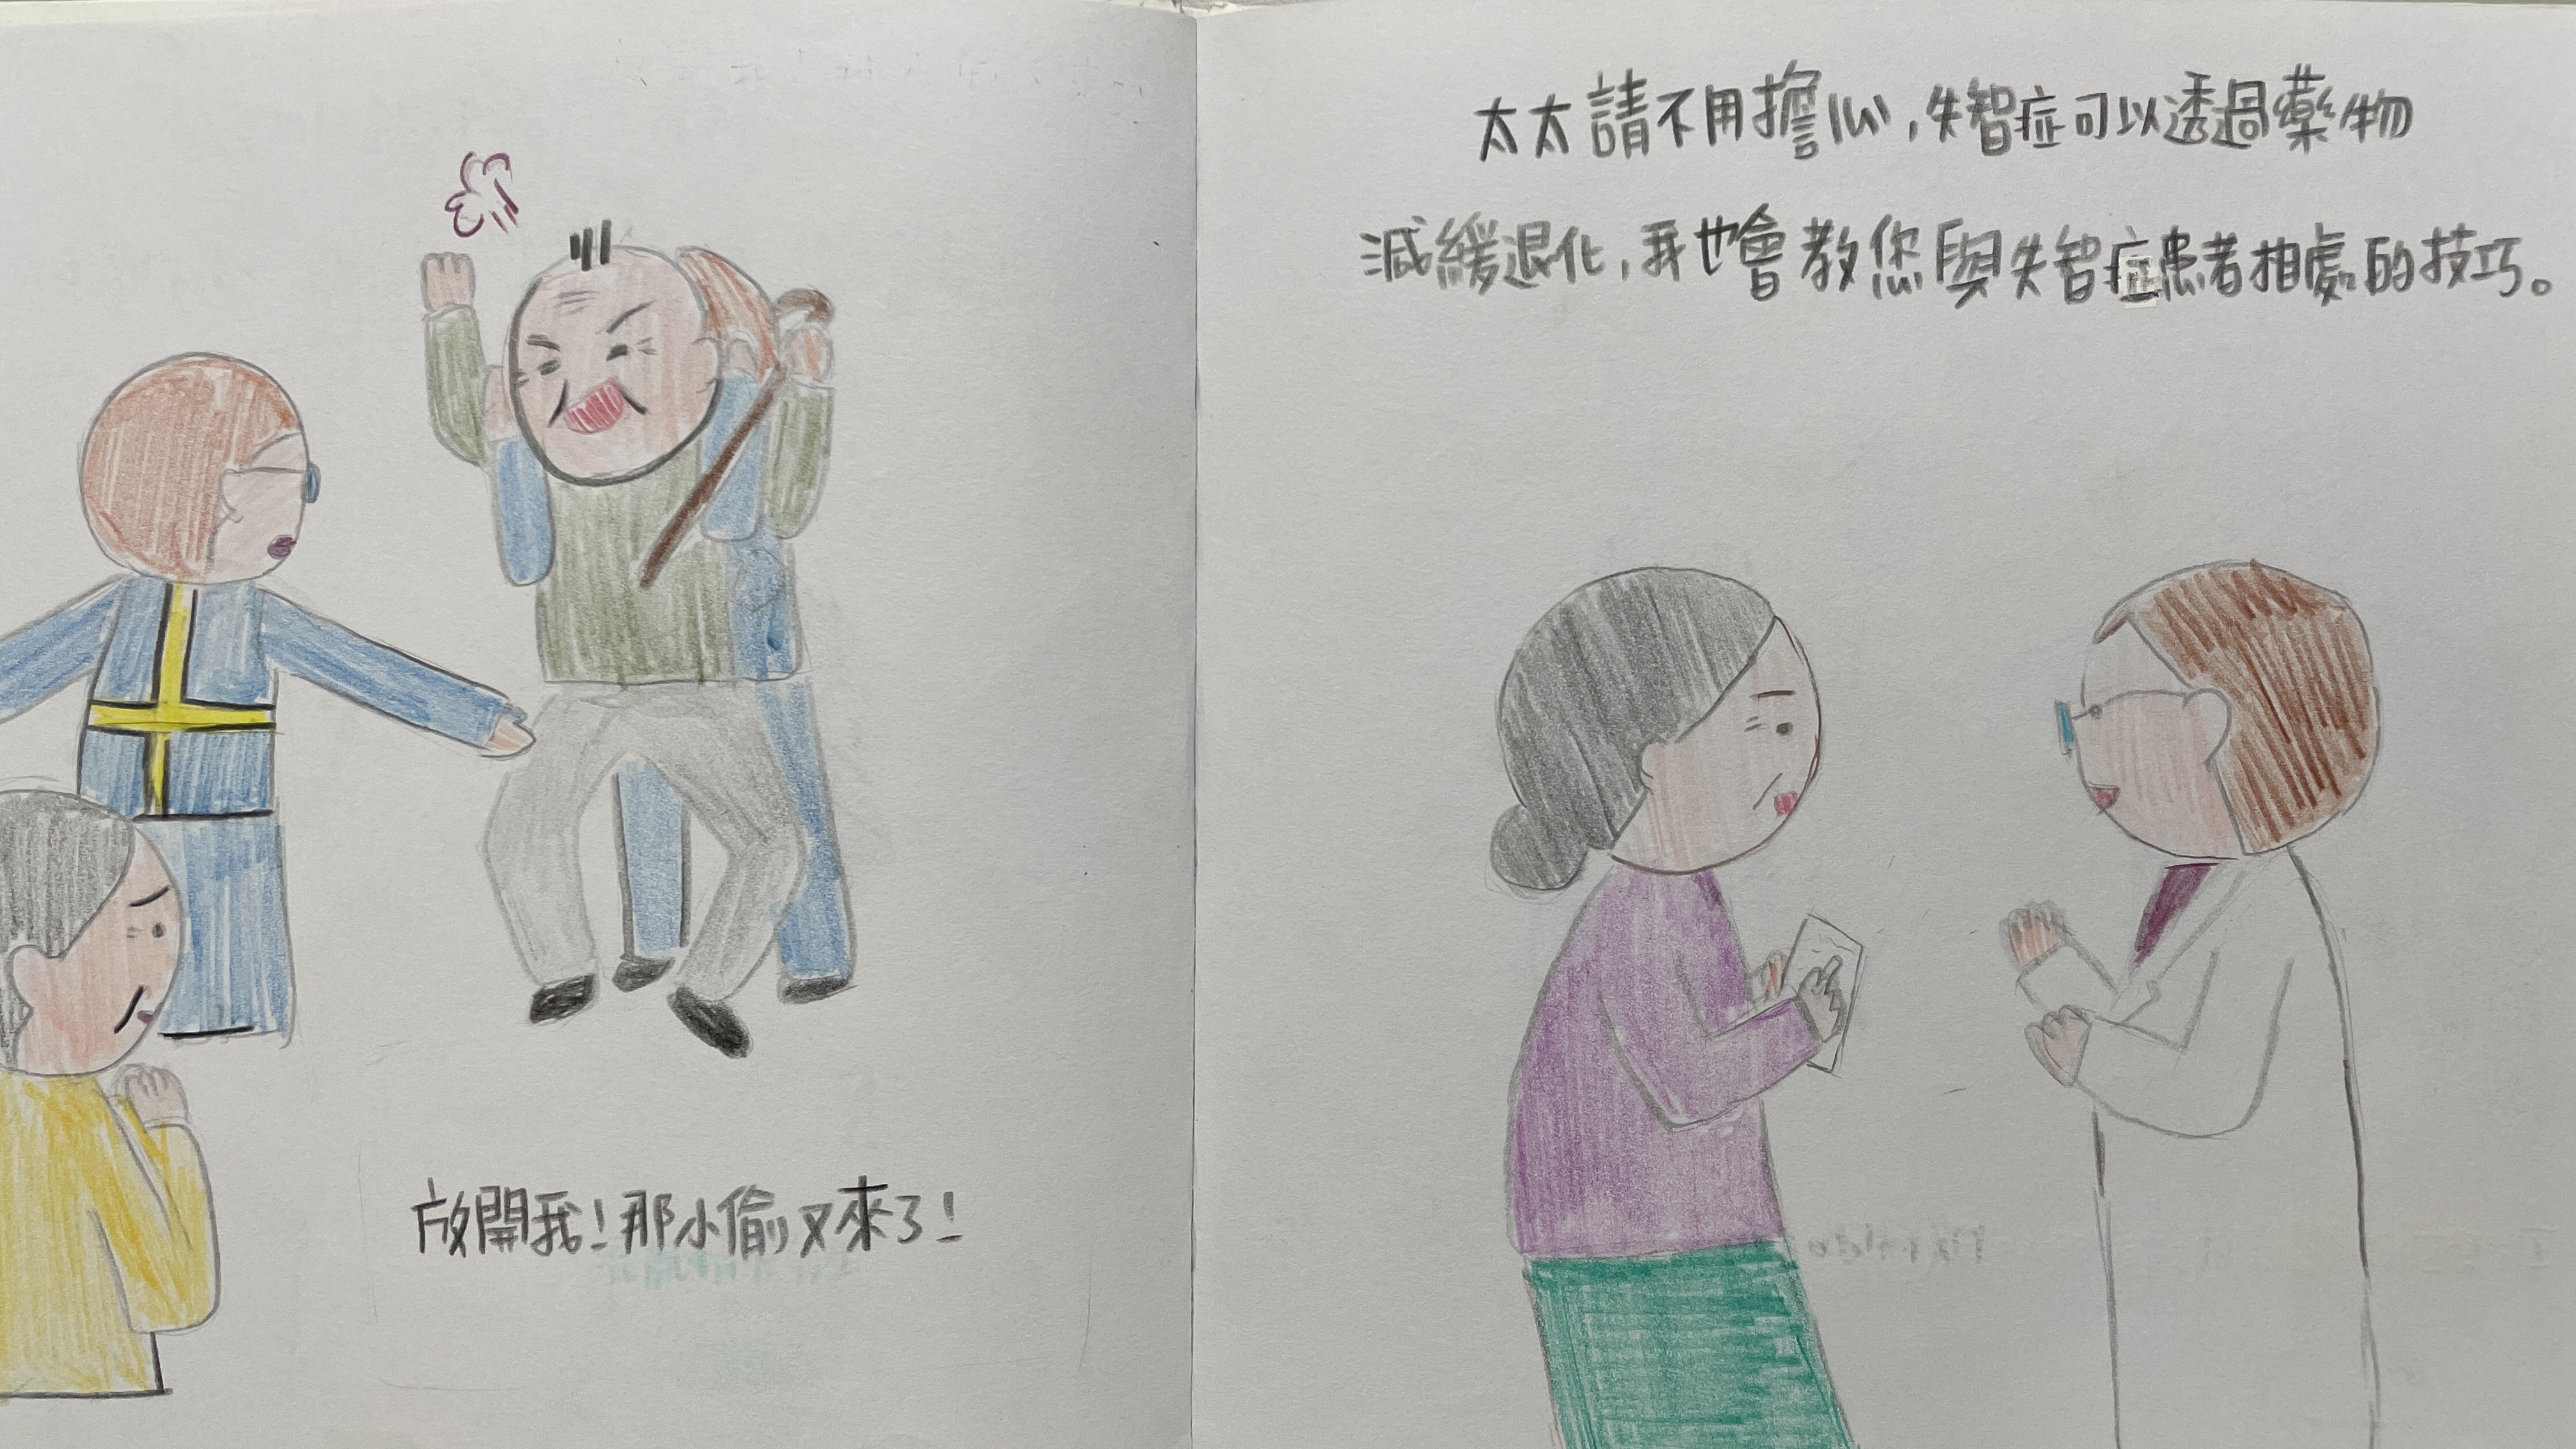 放開我!那小偷又來了!
太太請不用擔心,失智症可以透過藥物
減緩退化,我也會教您與失智症患者相處的技巧。